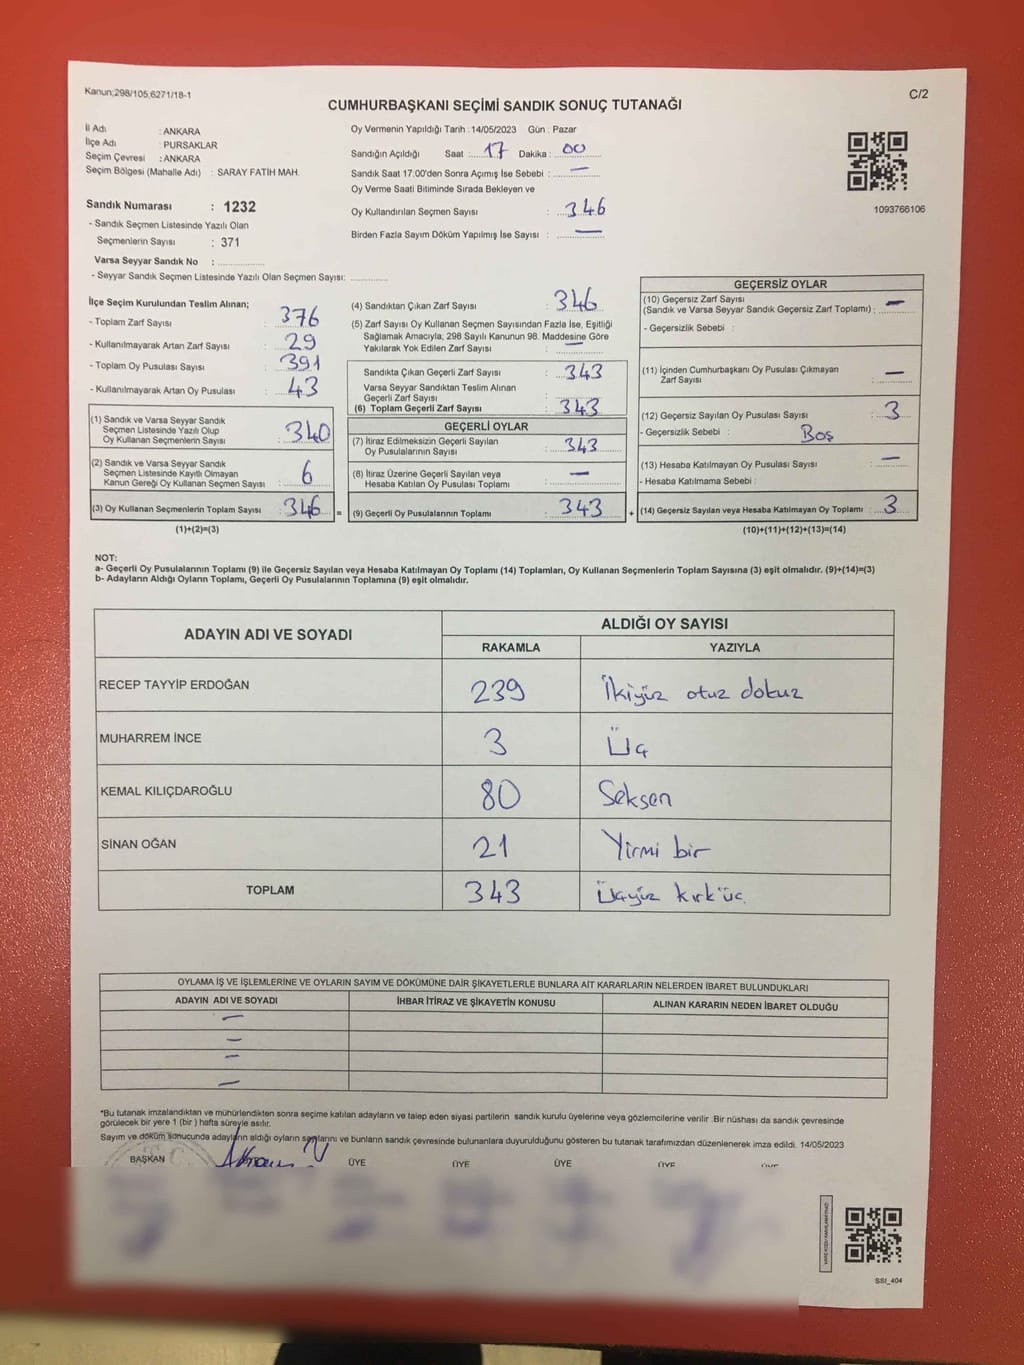 Kanun;298/105,6271/18-1
C/2
CUMHURBAŞKANI SEÇİMİ SANDIK SONUÇ TUTANAĞI
İl Adı : ANKARA
İlçe Adı : PURSAKLAR
Seçim Çevresi : ANKARA
Seçim Bölgesi (Mahalle Adı) : SARAY FATİH MAH.
Sandık Numarası : 1232
- Sandık Seçmen Listesinde Yazılı Olan
Seçmenlerin Sayısı : 371
Varsa Seyyar Sandık No :
- Seyyar Sandık Seçmen Listesinde Yazılı Olan Seçmen Sayısı:
Oy Vermenin Yapıldığı Tarih : 14/05/2023 Gün : Pazar
Sandığın Açıldığı Saat : 17 Dakika : 00
Sandık Saat 17.00'den Sonra Açımış İse Sebebi : —
Oy Verme Saati Bitiminde Sırada Bekleyen ve
Oy Kullandırılan Seçmen Sayısı : 346
Birden Fazla Sayım Döküm Yapılmış İse Sayısı : —
1093766106
İlçe Seçim Kurulundan Teslim Alınan;
- Toplam Zarf Sayısı : 376
- Kullanılmayarak Artan Zarf Sayısı : 29
- Toplam Oy Pusulası Sayısı : 391
- Kullanılmayarak Artan Oy Pusulası : 43
(1) Sandık ve Varsa Seyyar Sandık
Seçmen Listesinde Yazılı Olup
Oy Kullanan Seçmenlerin Sayısı : 340
(2) Sandık ve Varsa Seyyar Sandık
Seçmen Listesinde Kayıtlı Olmayan
Kanun Gereği Oy Kullanan Seçmen Sayısı : 6
(3) Oy Kullanan Seçmenlerin Toplam Sayısı : 346 =
(1)+(2)=(3)
(4) Sandıktan Çıkan Zarf Sayısı : 346
(5) Zarf Sayısı Oy Kullanan Seçmen Sayısından Fazla İse, Eşitliği
Sağlamak Amacıyla; 298 Sayılı Kanunun 98. Maddesine Göre
Yakılarak Yok Edilen Zarf Sayısı : —
Sandıkta Çıkan Geçerli Zarf Sayısı : 343
Varsa Seyyar Sandıktan Teslim Alınan
Geçerli Zarf Sayısı :
(6) Toplam Geçerli Zarf Sayısı : 343
GEÇERLİ OYLAR
(7) İtiraz Edilmeksizin Geçerli Sayılan
Oy Pusulalarının Sayısı : 343
(8) İtiraz Üzerine Geçerli Sayılan veya
Hesaba Katılan Oy Pusulası Toplamı : —
(9) Geçerli Oy Pusulalarının Toplamı : 343 +
GEÇERSİZ OYLAR
(10) Geçersiz Zarf Sayısı
(Sandık ve Varsa Seyyar Sandık Geçersiz Zarf Toplamı) : —
- Geçersizlik Sebebi :
(11) İçinden Cumhurbaşkanı Oy Pusulası Çıkmayan
Zarf Sayısı : —
(12) Geçersiz Sayılan Oy Pusulası Sayısı : 3
- Geçersizlik Sebebi : Boş
(13) Hesaba Katılmayan Oy Pusulası Sayısı : —
- Hesaba Katılmama Sebebi :
(14) Geçersiz Sayılan veya Hesaba Katılmayan Oy Toplamı : 3
(10)+(11)+(12)+(13)=(14)
NOT:
a- Geçerli Oy Pusulalarının Toplamı (9) ile Geçersiz Sayılan veya Hesaba Katılmayan Oy Toplamı (14) Toplamları, Oy Kullanan Seçmenlerin Toplam Sayısına (3) eşit olmalıdır. (9)+(14)=(3)
b- Adayların Aldığı Oyların Toplamı, Geçerli Oy Pusulalarının Toplamına (9) eşit olmalıdır.
ADAYIN ADI VE SOYADI ALDIĞI OY SAYISI
RAKAMLA YAZIYLA
RECEP TAYYİP ERDOĞAN 239 İkiyüz otuz dokuz
MUHARREM İNCE 3 Üç
KEMAL KILIÇDAROĞLU 80 Seksen
SİNAN OĞAN 21 Yirmi bir
TOPLAM 343 Üçyüz kırk üç.
OYLAMA İŞ VE İŞLEMLERİNE VE OYLARIN SAYIM VE DÖKÜMÜNE DAİR ŞİKAYETLERLE BUNLARA AİT KARARLARIN NELERDEN İBARET BULUNDUKLARI
ADAYIN ADI VE SOYADI İHBAR İTİRAZ VE ŞİKAYETİN KONUSU ALINAN KARARIN NEDEN İBARET OLDUĞU
—
—
—
—
*Bu tutanak imzalandıktan ve mühürlendikten sonra seçime katılan adayların ve talep eden siyasi partilerin sandık kurulu üyelerine veya gözlemcilerine verilir .Bir nüshası da sandık çevresinde
görülecek bir yere 1 (bir ) hafta süreyle asılır.
Sayım ve döküm sonucunda adayların aldığı oyların sayılarını ve bunların sandık çevresinde bulunanlara duyurulduğunu gösteren bu tutanak tarafımızdan düzenlenerek imza edildi. 14/05/2023
BAŞKAN ÜYE ÜYE ÜYE ÜYE
SSI_404